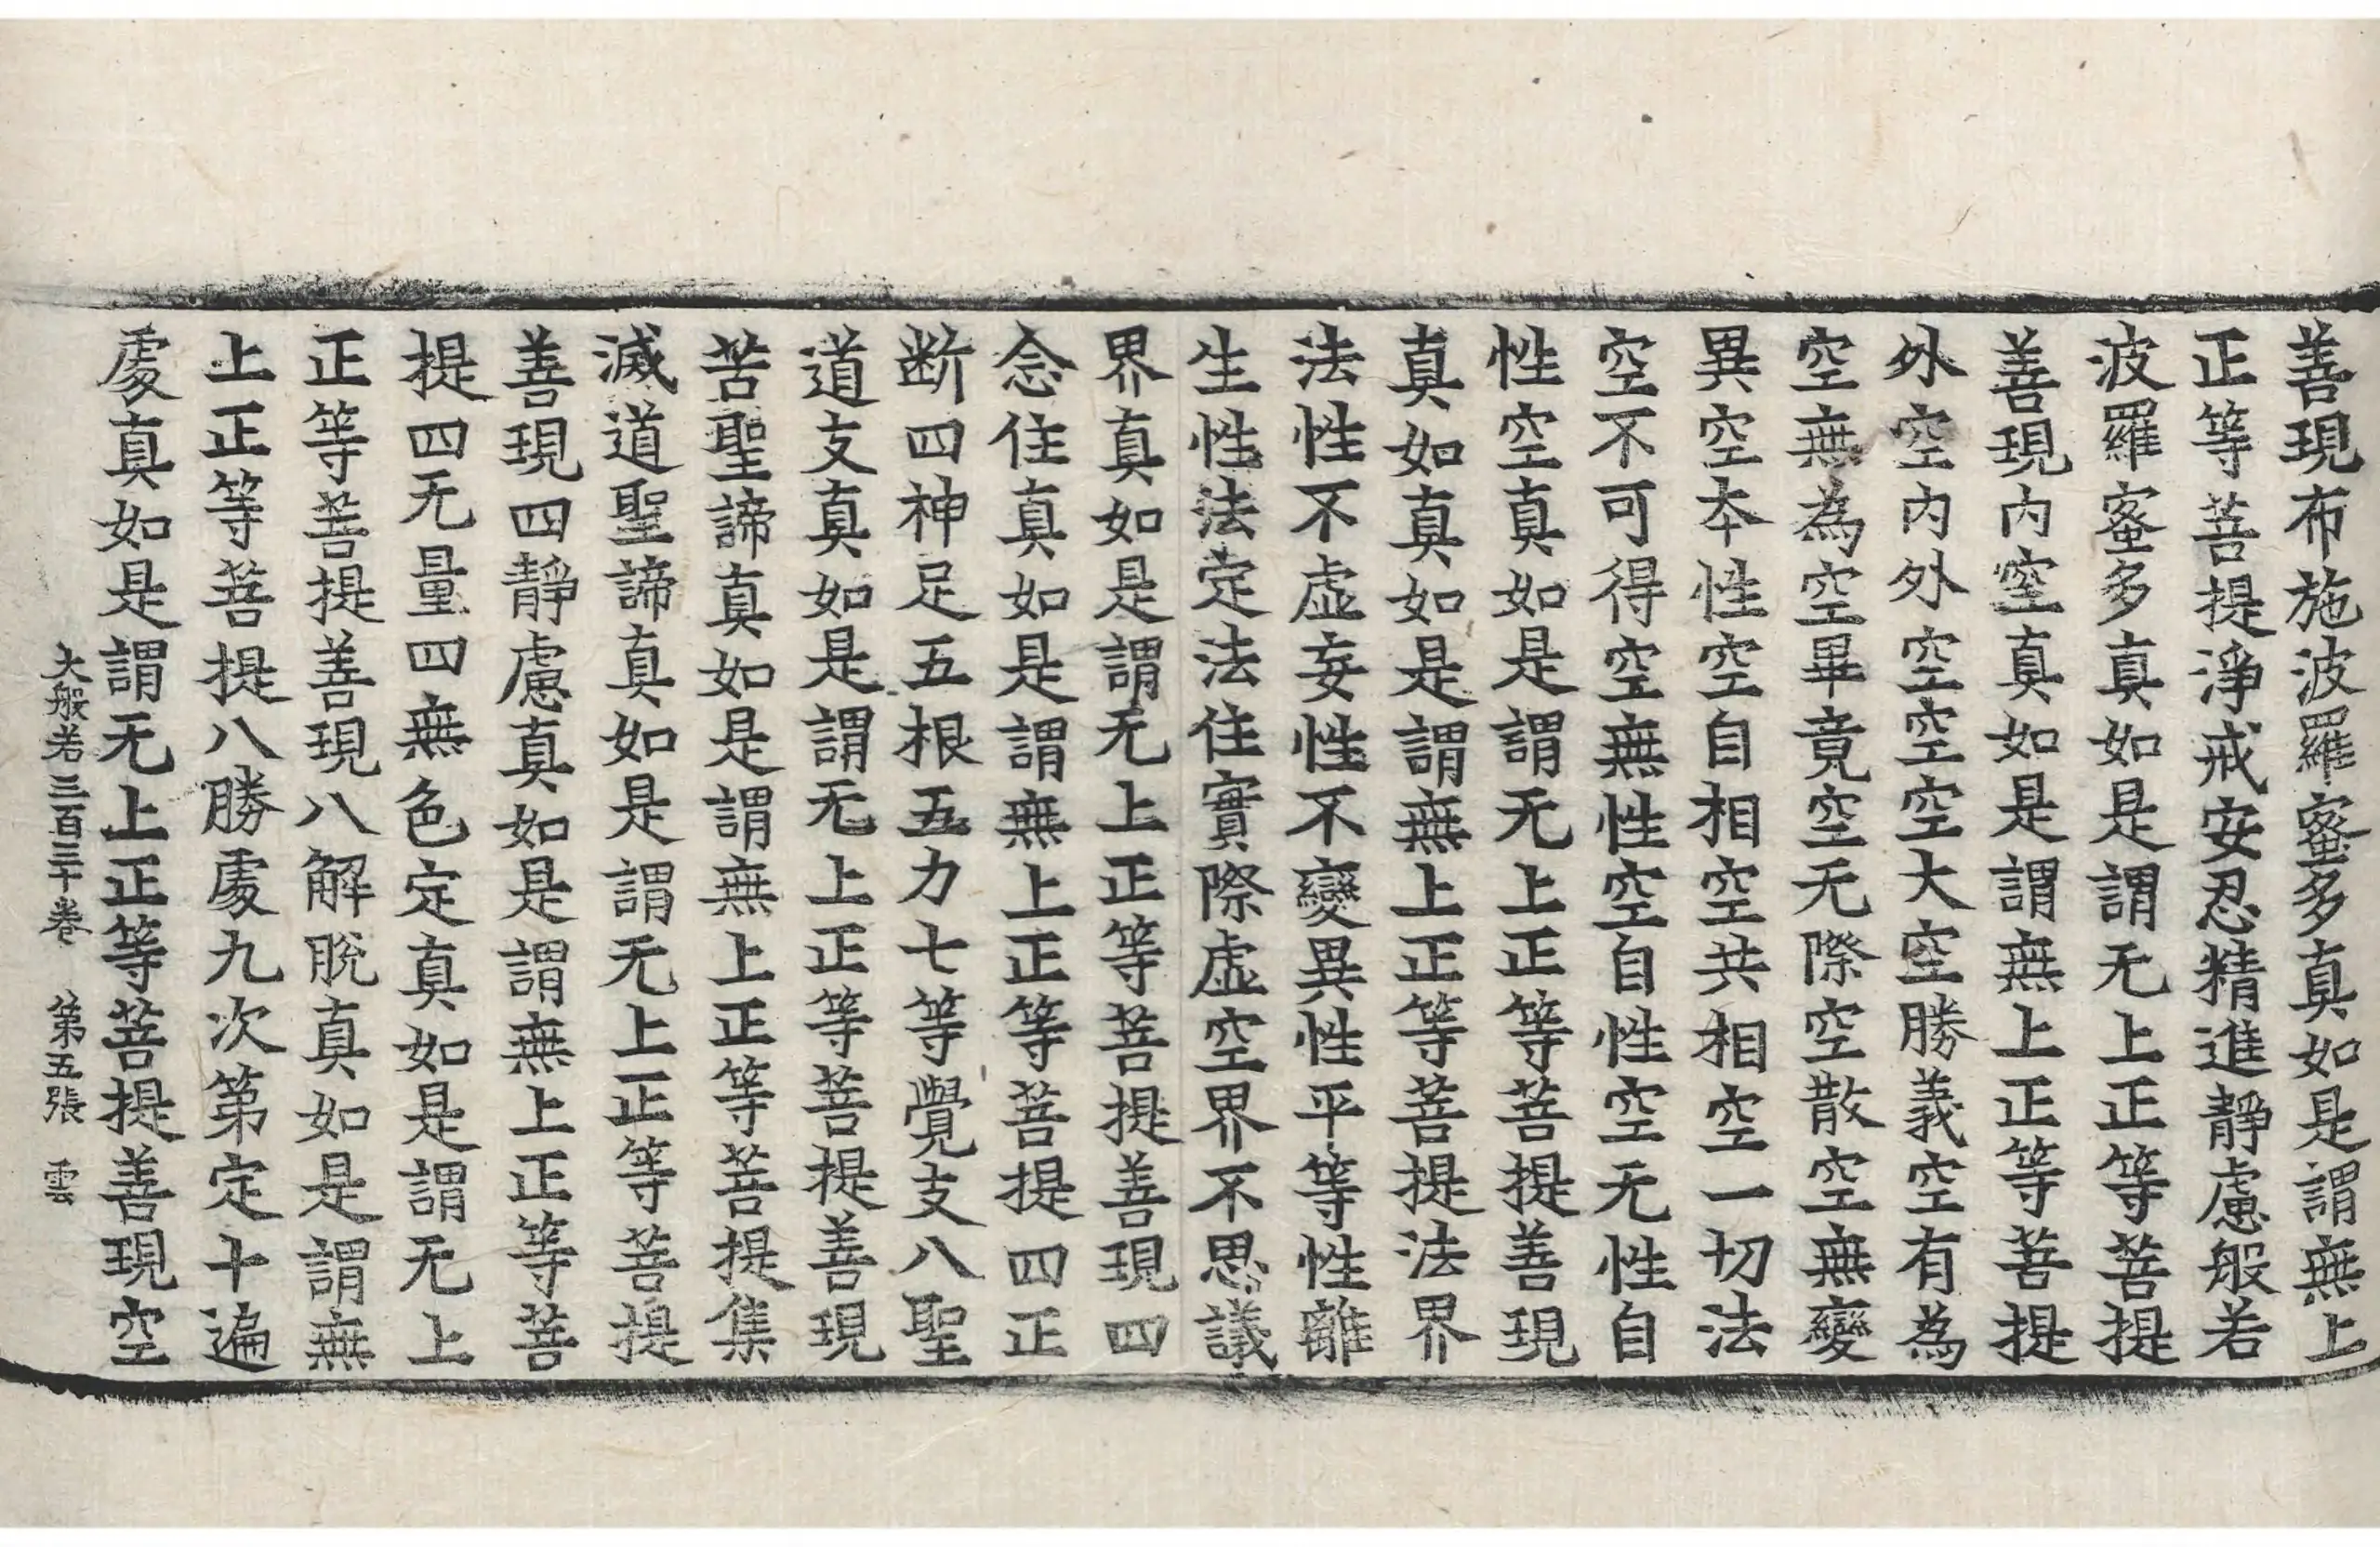 善現布施波羅蜜多真如是謂無上
正等菩提淨戒安忍精進靜慮般若
波羅蜜多真如是謂无上正等菩提
善現內空真如是謂無上正等菩提
外空內外空空空大空勝義空有為
空無為空畢竟空无際空散空無變
異空本性空自相空共相空一切法
空不可得空無性空自性空无性自
性空真如是謂无上正等菩提善現
真如真如是謂無上正等菩提法界
法性不虛妄性不變異性平等性離
生性法定法住實際虛空界不思議
界真如是謂无上正等菩提善現四
念住真如是謂無上正等菩提四正
断四神足五根五力七等覺支八聖
道支真如是謂无上正等菩提善現
苦聖諦真如是謂無上正等菩提集
滅道聖諦真如是謂无上正等菩提
善現四靜慮真如是謂無上正等菩
提四无量四無色定真如是謂无上
正等菩提善現八解脫真如是謂無
上正等菩提八勝處九次第定十遍
處真如是謂无上正等菩提善現空
大般若三百三十卷 第五張 雲